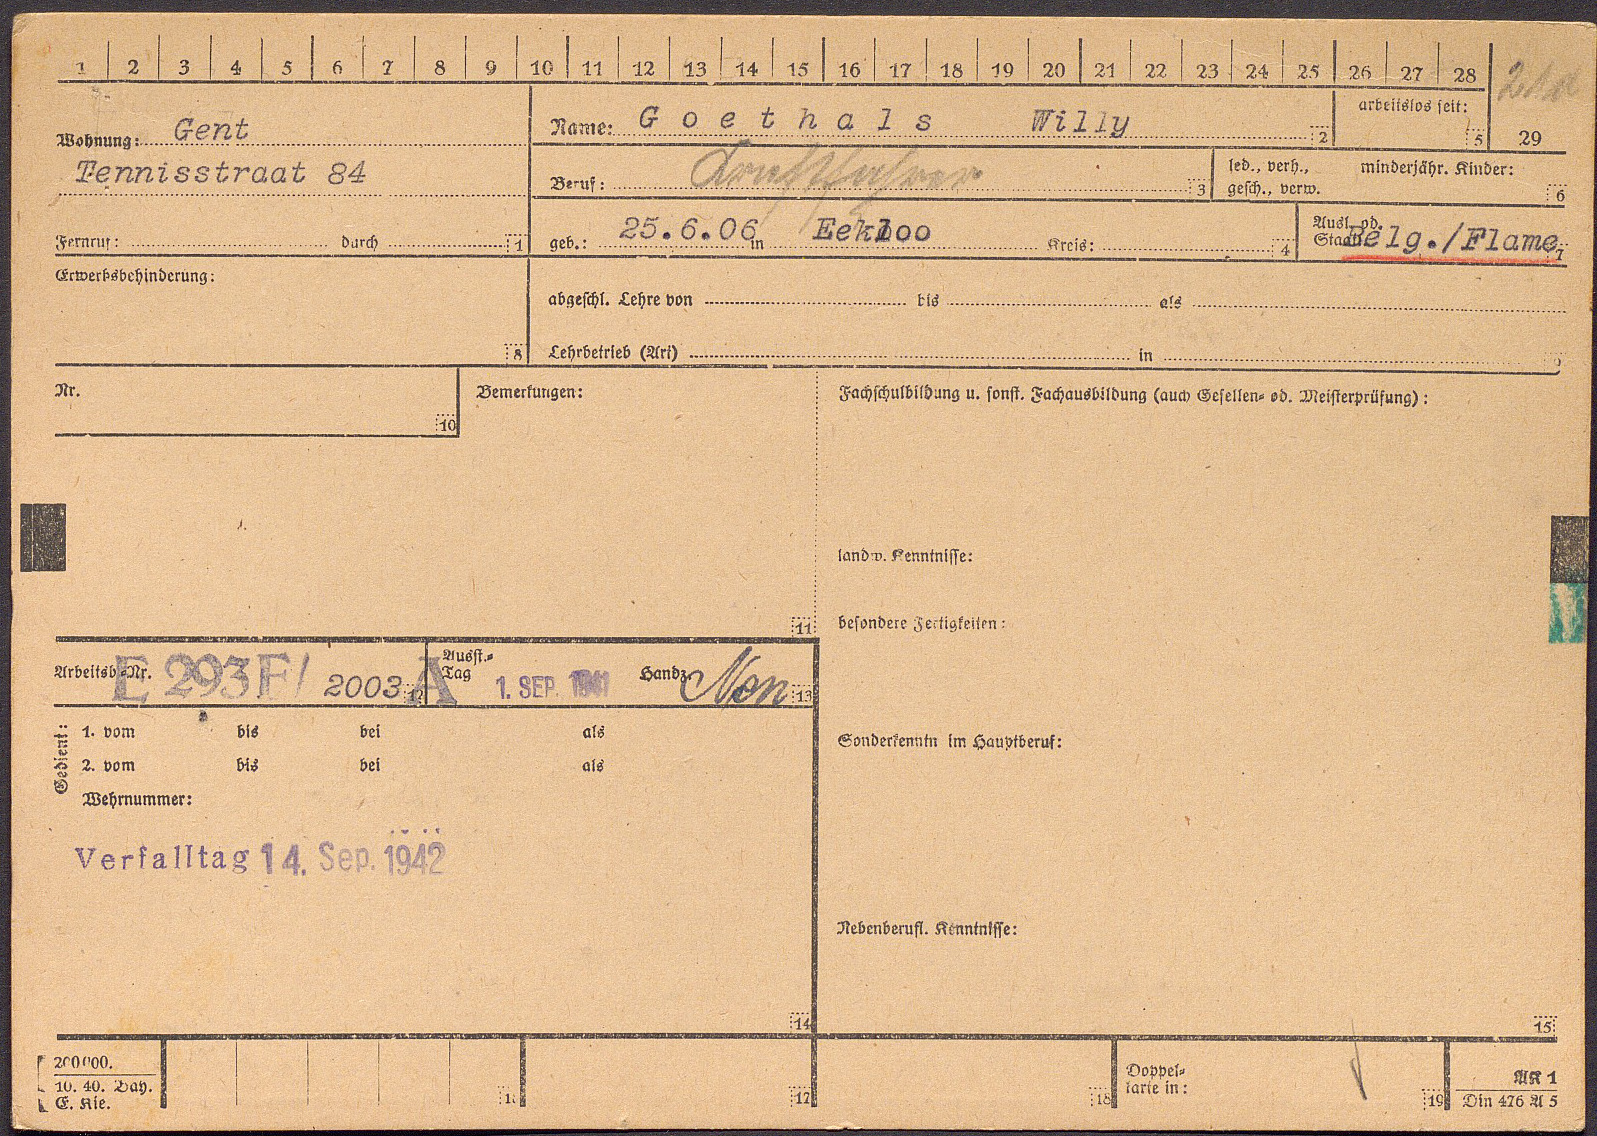 1 2 3 4 5 6 7 8 9 10 11 12 13 14 15 16 17 18 19 20 21 22 23 24 25 26 27 28
Wohnung: Gent
Tennisstraat 84
Fernruf: durch 1
Name: Goethals Willy 2
arbeitslos seit: 5
29
Beruf: Kraftfahrer 3
led., verh., gesch., verw.
minderjähr. Kinder: 6
geb.: 25.6.06 in Eekloo Kreis: 4
Ausl. od. Staat: Belg./Flame 7
Erwerbsbehinderung: 8
abgeschl. Lehre von bis als
Lehrbetrieb (Art) in
Nr. 10
Bemerkungen: 11
Fachschulbildung u. sonst. Fachausbildung (auch Gesellen- od. Meisterprüfung):
landw. Kenntnisse:
besondere Fertigkeiten:
Arbeitsb.-Nr. E 293F/ 2003 12 A
Ausst.-Tag 1. SEP. 1941 Handz. 13
Sonderkenntn im Hauptberuf:
Gedient:
1. vom bis bei als
2. vom bis bei als
Wehrnummer:
Verfalltag 14. Sep. 1942
Nebenberufl. Kenntnisse:
14
15
200000.
10. 40. Bay.
E. Kie.
17
18
Doppel-
karte in: 19
AK 1
Din 476 A 5